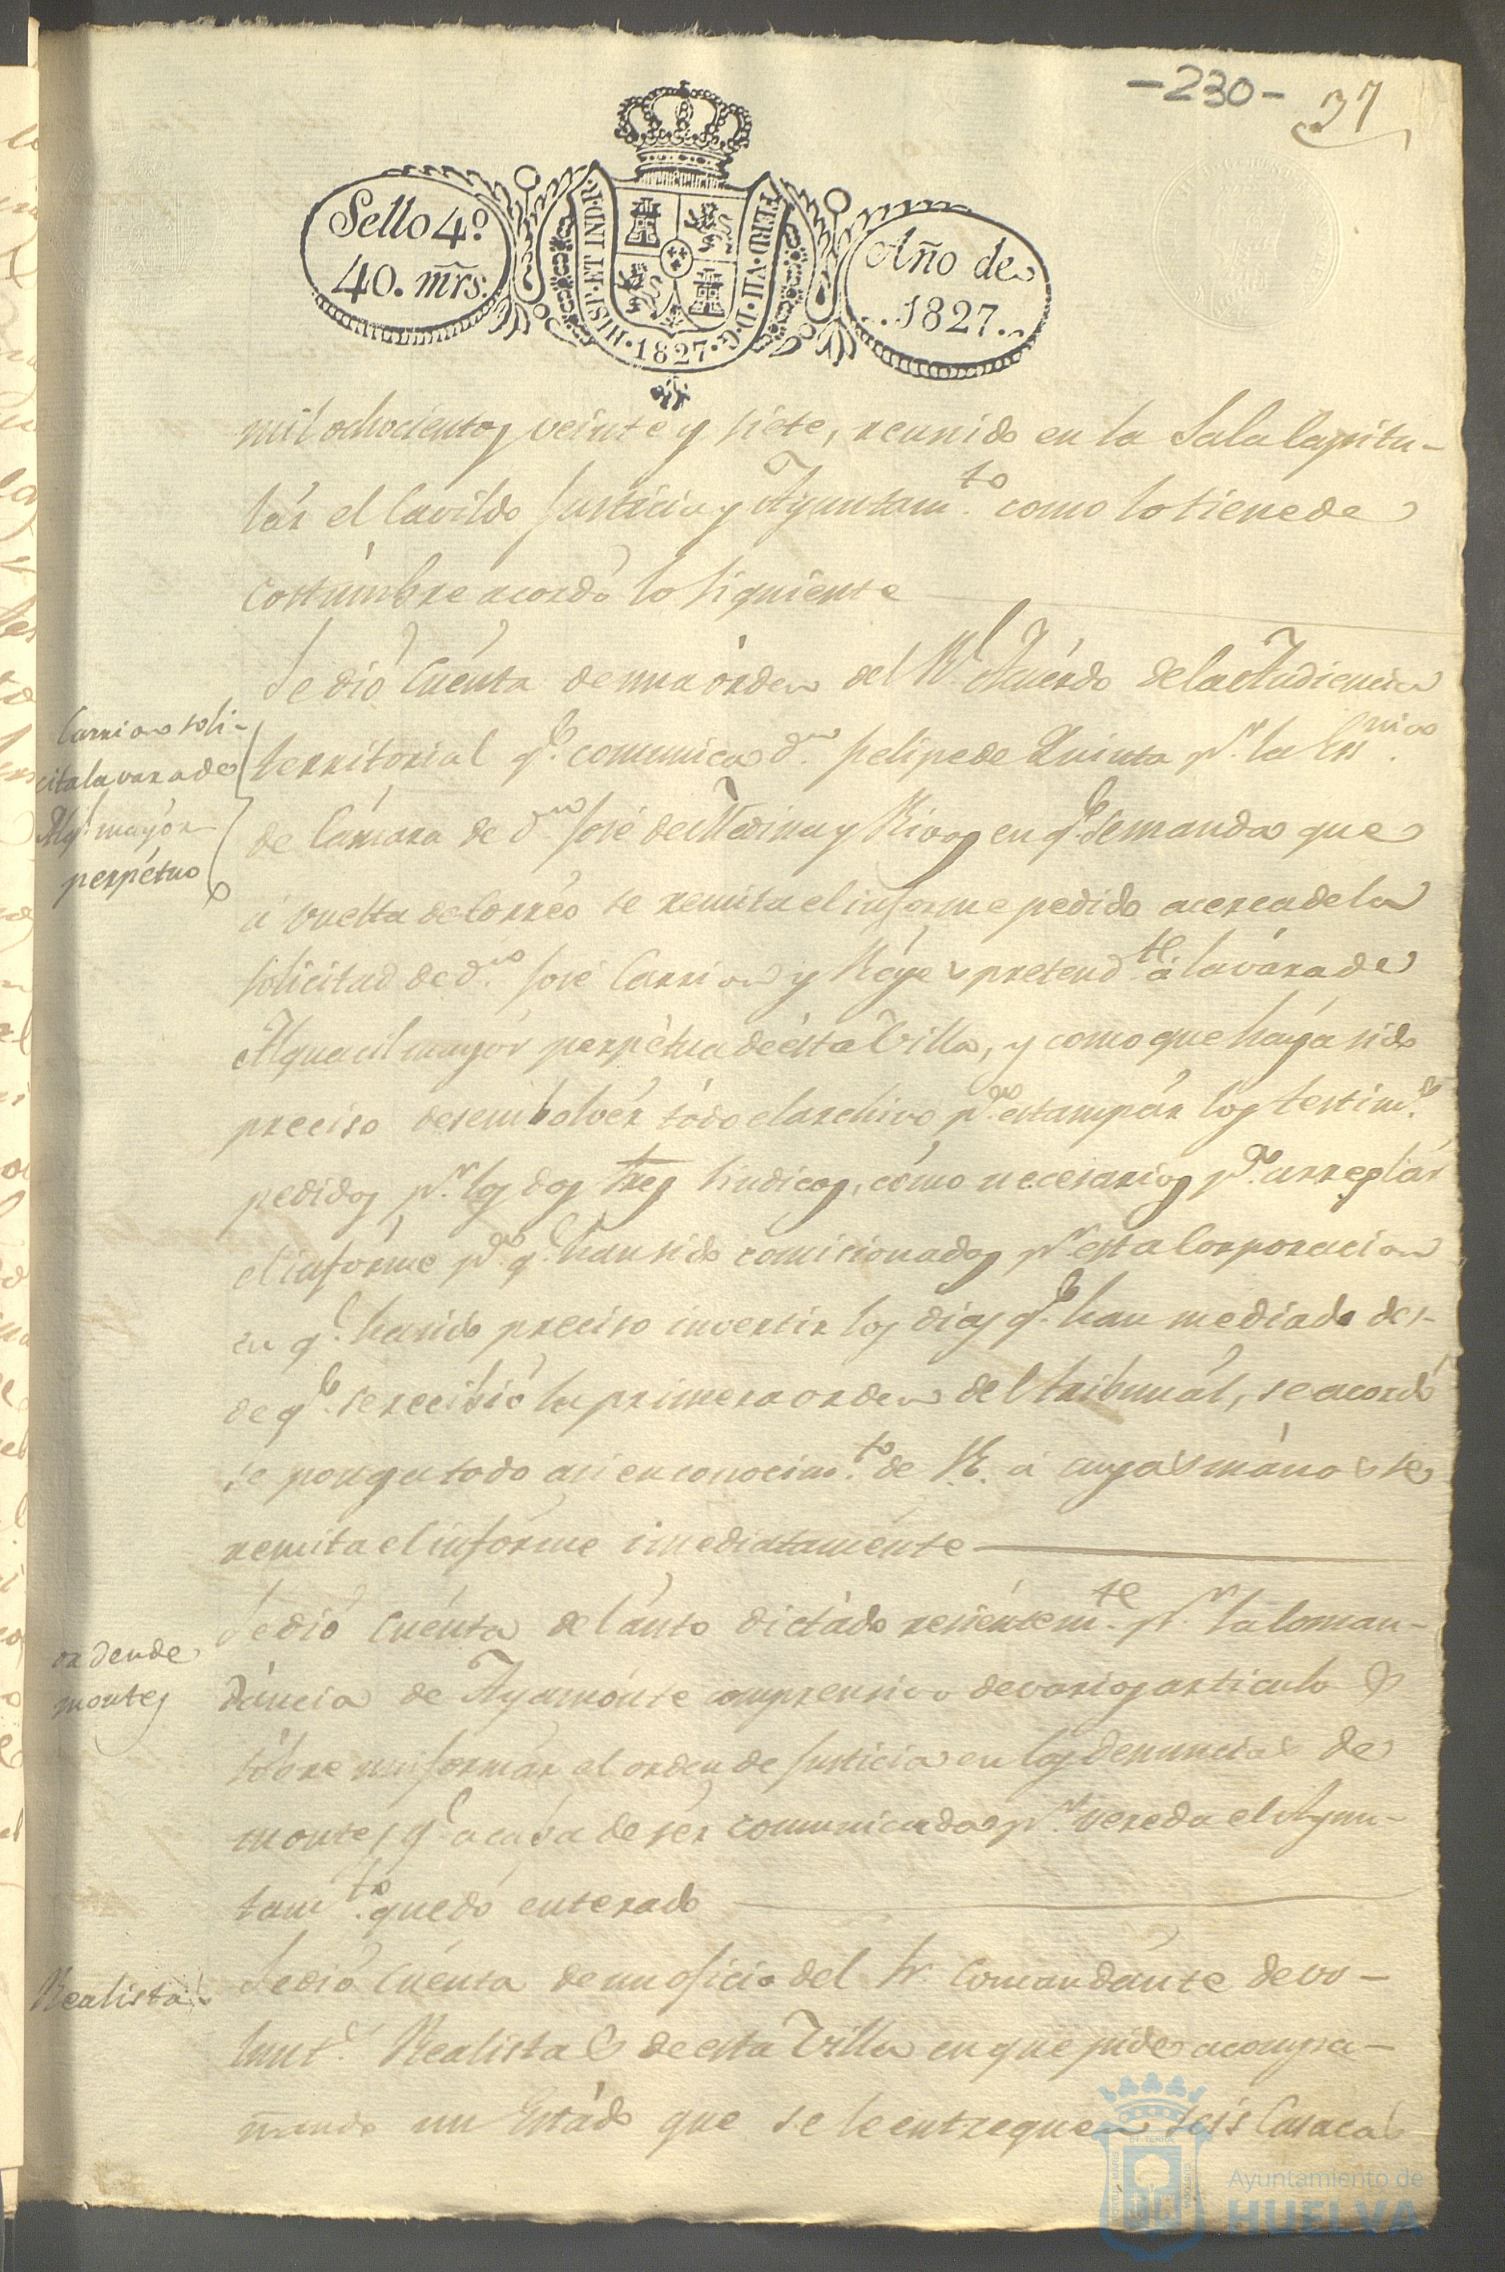 -230- 37
Sello 4º
40. mrs.
HISP. ET IND. R.
FERD. VII. D. G.
.1827.
Año de
..1827..
mil ochocientos veinte y siete, reunido en la Sala Capitu-
lár el Cavildo Justicia y Ayuntam.to como lo tiene de
costumbre acordó lo siguiente
Se dió Cuenta de una órden del Rl. Acuérdo de la Audiencia
Carrion soli-
cita la vara de
Algl. mayór
perpétuo
territorial q.e comunica d.n Felipe de Quinta p.r la Ess.nia
de Cámara de d.n José de Medina y Rivas en q.e se manda que
á vuelta de Corréo se remita el informe pedido acerca de la
solicitud de d.n José Carrion y Réyes pretend.te á la vára de
Alguacil mayór perpétua de ésta Villa, y como que haya sido
preciso desembolvér tódo el archivo p.a estampár los testim.s
pedidos p.r los dos Sres Sindicos, cómo necesarios p.a arreglár
el infórme p.a q.e han sido comisionados p.r esta Corporacion
en q.e ha sido preciso invertir los dias q.e han mediado des-
de q.e se recibió la primera orden del tribunál, se acordó
se ponga todo asi en conocim.to de R. á cuyas mános se
remita el infórme imediatamente
Se dió Cuénta del auto dictádo reciéntem.te p.r la Coman-
orden de
montes
dáncia de Ayamónte comprensivo de varios articulos
sóbre uniformár el orden de Justicia en las denuncias de
montes q.e acaba de sér comunicada p.r vereda el Ayun-
tam.to quedó enterado
Realistas
Se dió Cuénta de un oficio del Sr. Comandánte de vo-
lunt.s Realistas de esta Villa en que pide acompa-
ñando un Estádo que se le entreguen seis Casacas
Ayuntamiento de
HUELVA